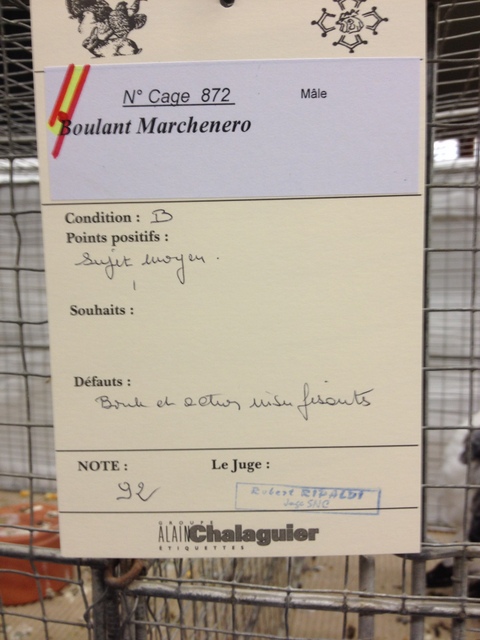 N° Cage 872
Mâle
Boulant Marchenero
Condition : B
Points positifs :
Sujet moyen.
Souhaits :
Défauts :
Boule et action insuffisants
NOTE :
Le Juge :
92
Robert
Juge SNC
GROUPE
ALAIN Chalaguier
ÉTIQUETTES